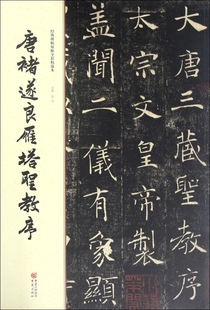 大唐三藏聖教序
太宗文皇帝製
蓋聞二儀有象顯
唐褚遂良雁塔聖教序